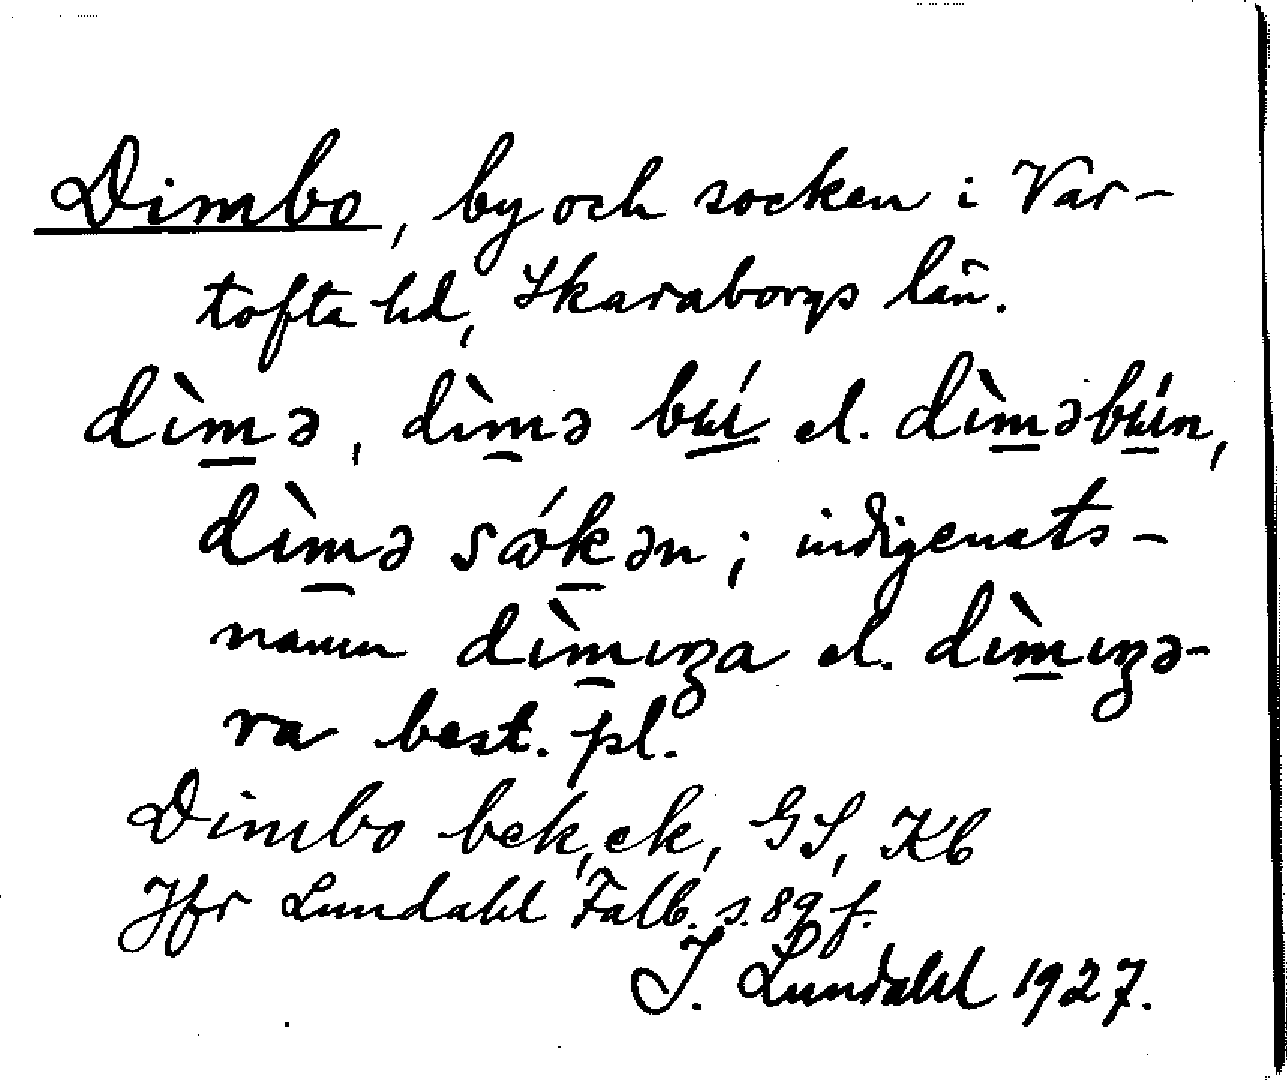 Dimbo, by och socken i Var-
tofta hd, Skaraborgs län.
dìm̲ə, dìm̲ə bɯ́ el. dìm̲əbɯ́n,
dìm̲ə sǿkən; indigenats-
namn dìm̲ɪŋa el. dìm̲ɪŋə-
ra best. pl.
Dimbo bek, ek, GS, Kb
Jfr Lundahl Falb. s. 89 f.
I. Lundahl 1927.